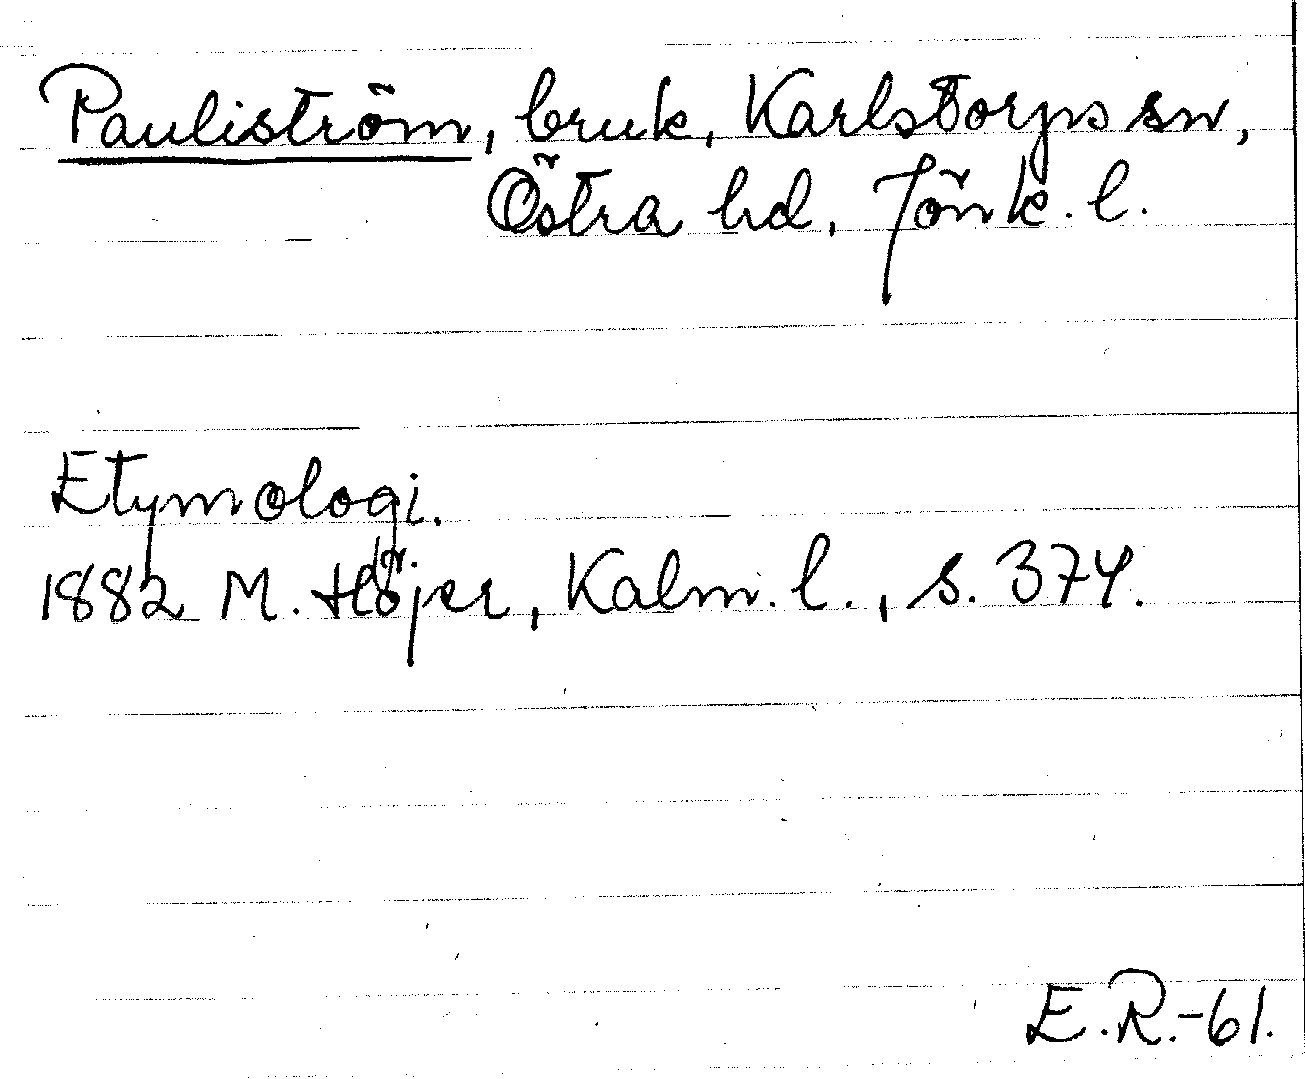 Pauliström, bruk, Karlstorps sn,
Östra hd, Jönk. l.
Etymologi.
1882 M. Höjer, Kalm. l., s. 374.
E.R.-61.